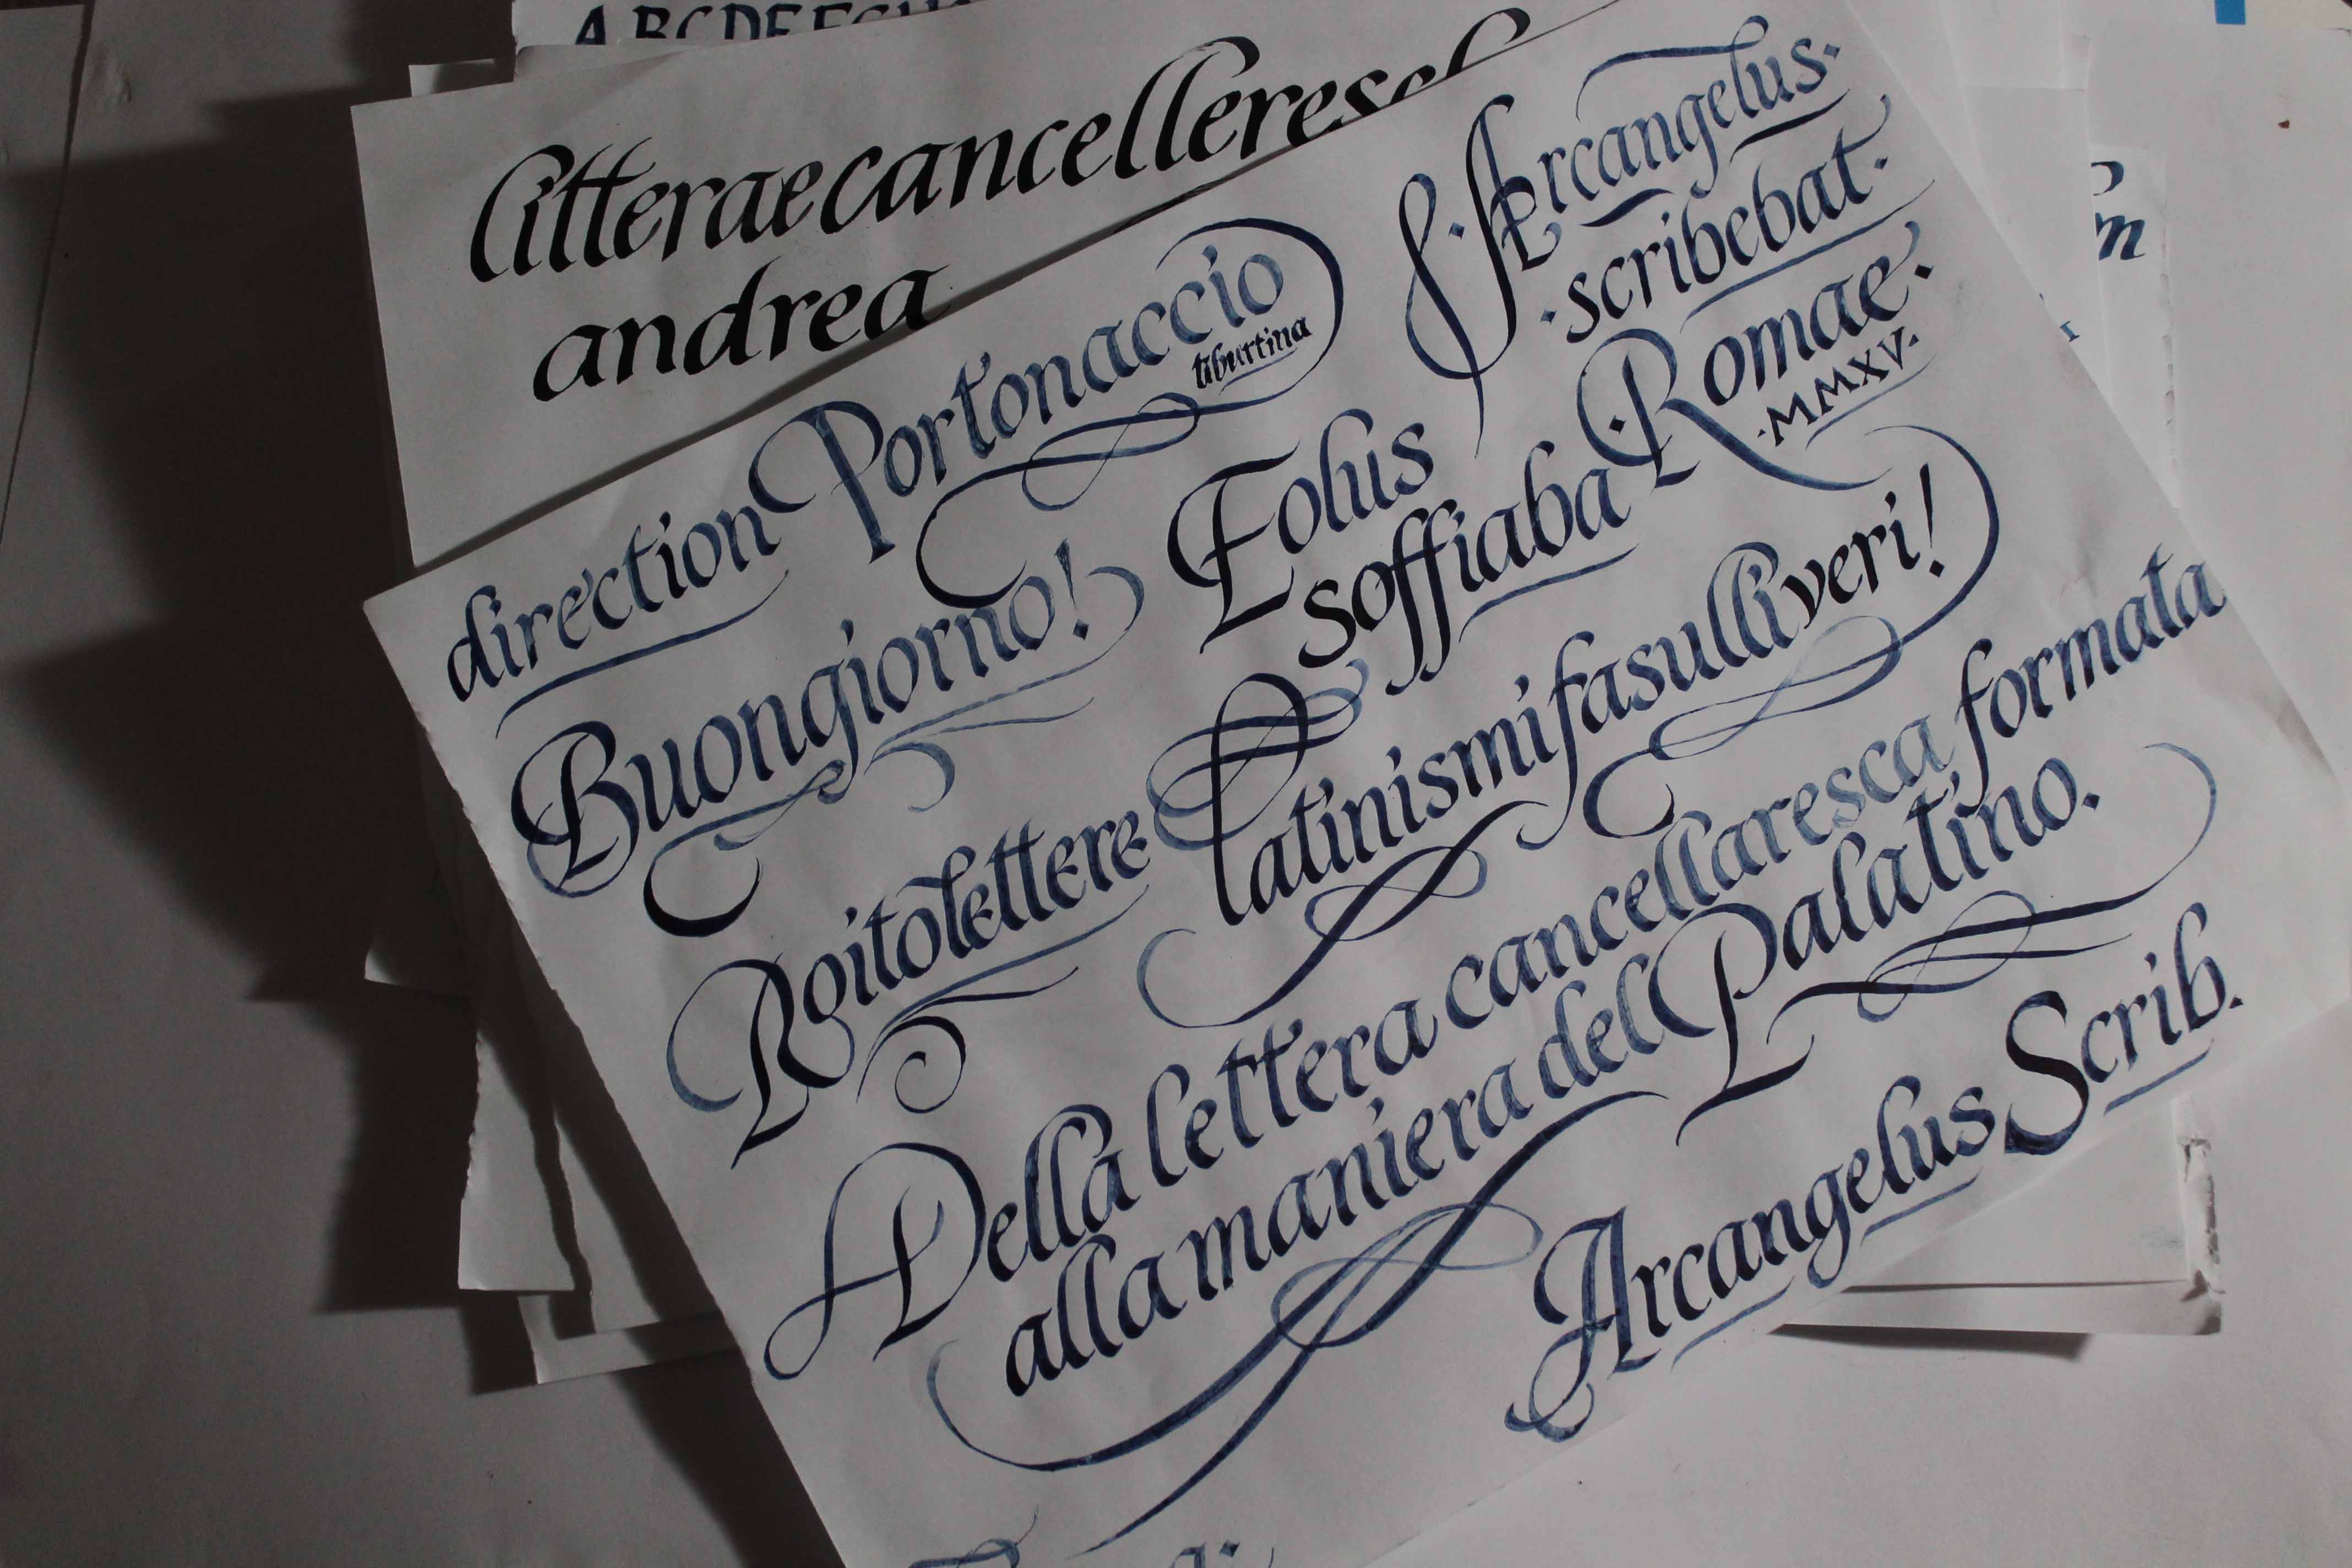 ABCDEFGH
litteraecancelleresc
andrea
direction Portonaccio
tiburtina
Buongiorno!
Roitolettere
·Arcangelus·
·scribebat·
·Romae·
·MMXV·
Eolus
soffiaba
latinismifasulliveri!
Della lettera cancellaresca formata
alla maniera del Palatino.
Arcangelus Scrib.